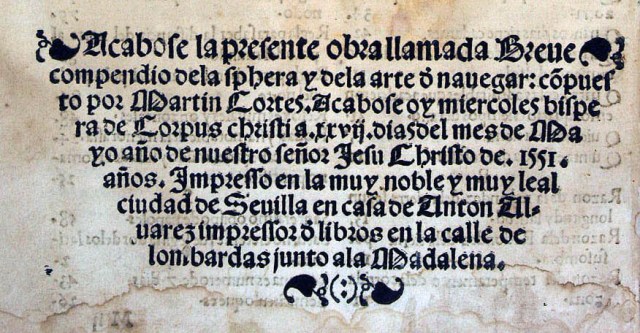 Acabose la presente obra llamada Breue
compendio dela sphera y dela arte õ nauegar: cõpues
to por Martin Cortes. Acabose oy miercoles bispe
ra de Corpus christi a. xxvij. dias del mes de Ma
yo año de nuestro señor Jesu Christo de. 1551.
años. Impresso en la muy noble y muy leal
ciudad de Seuilla en casa de Anton Al-
uarez impressor õ libros en la calle de
lombardas junto ala Madalena.